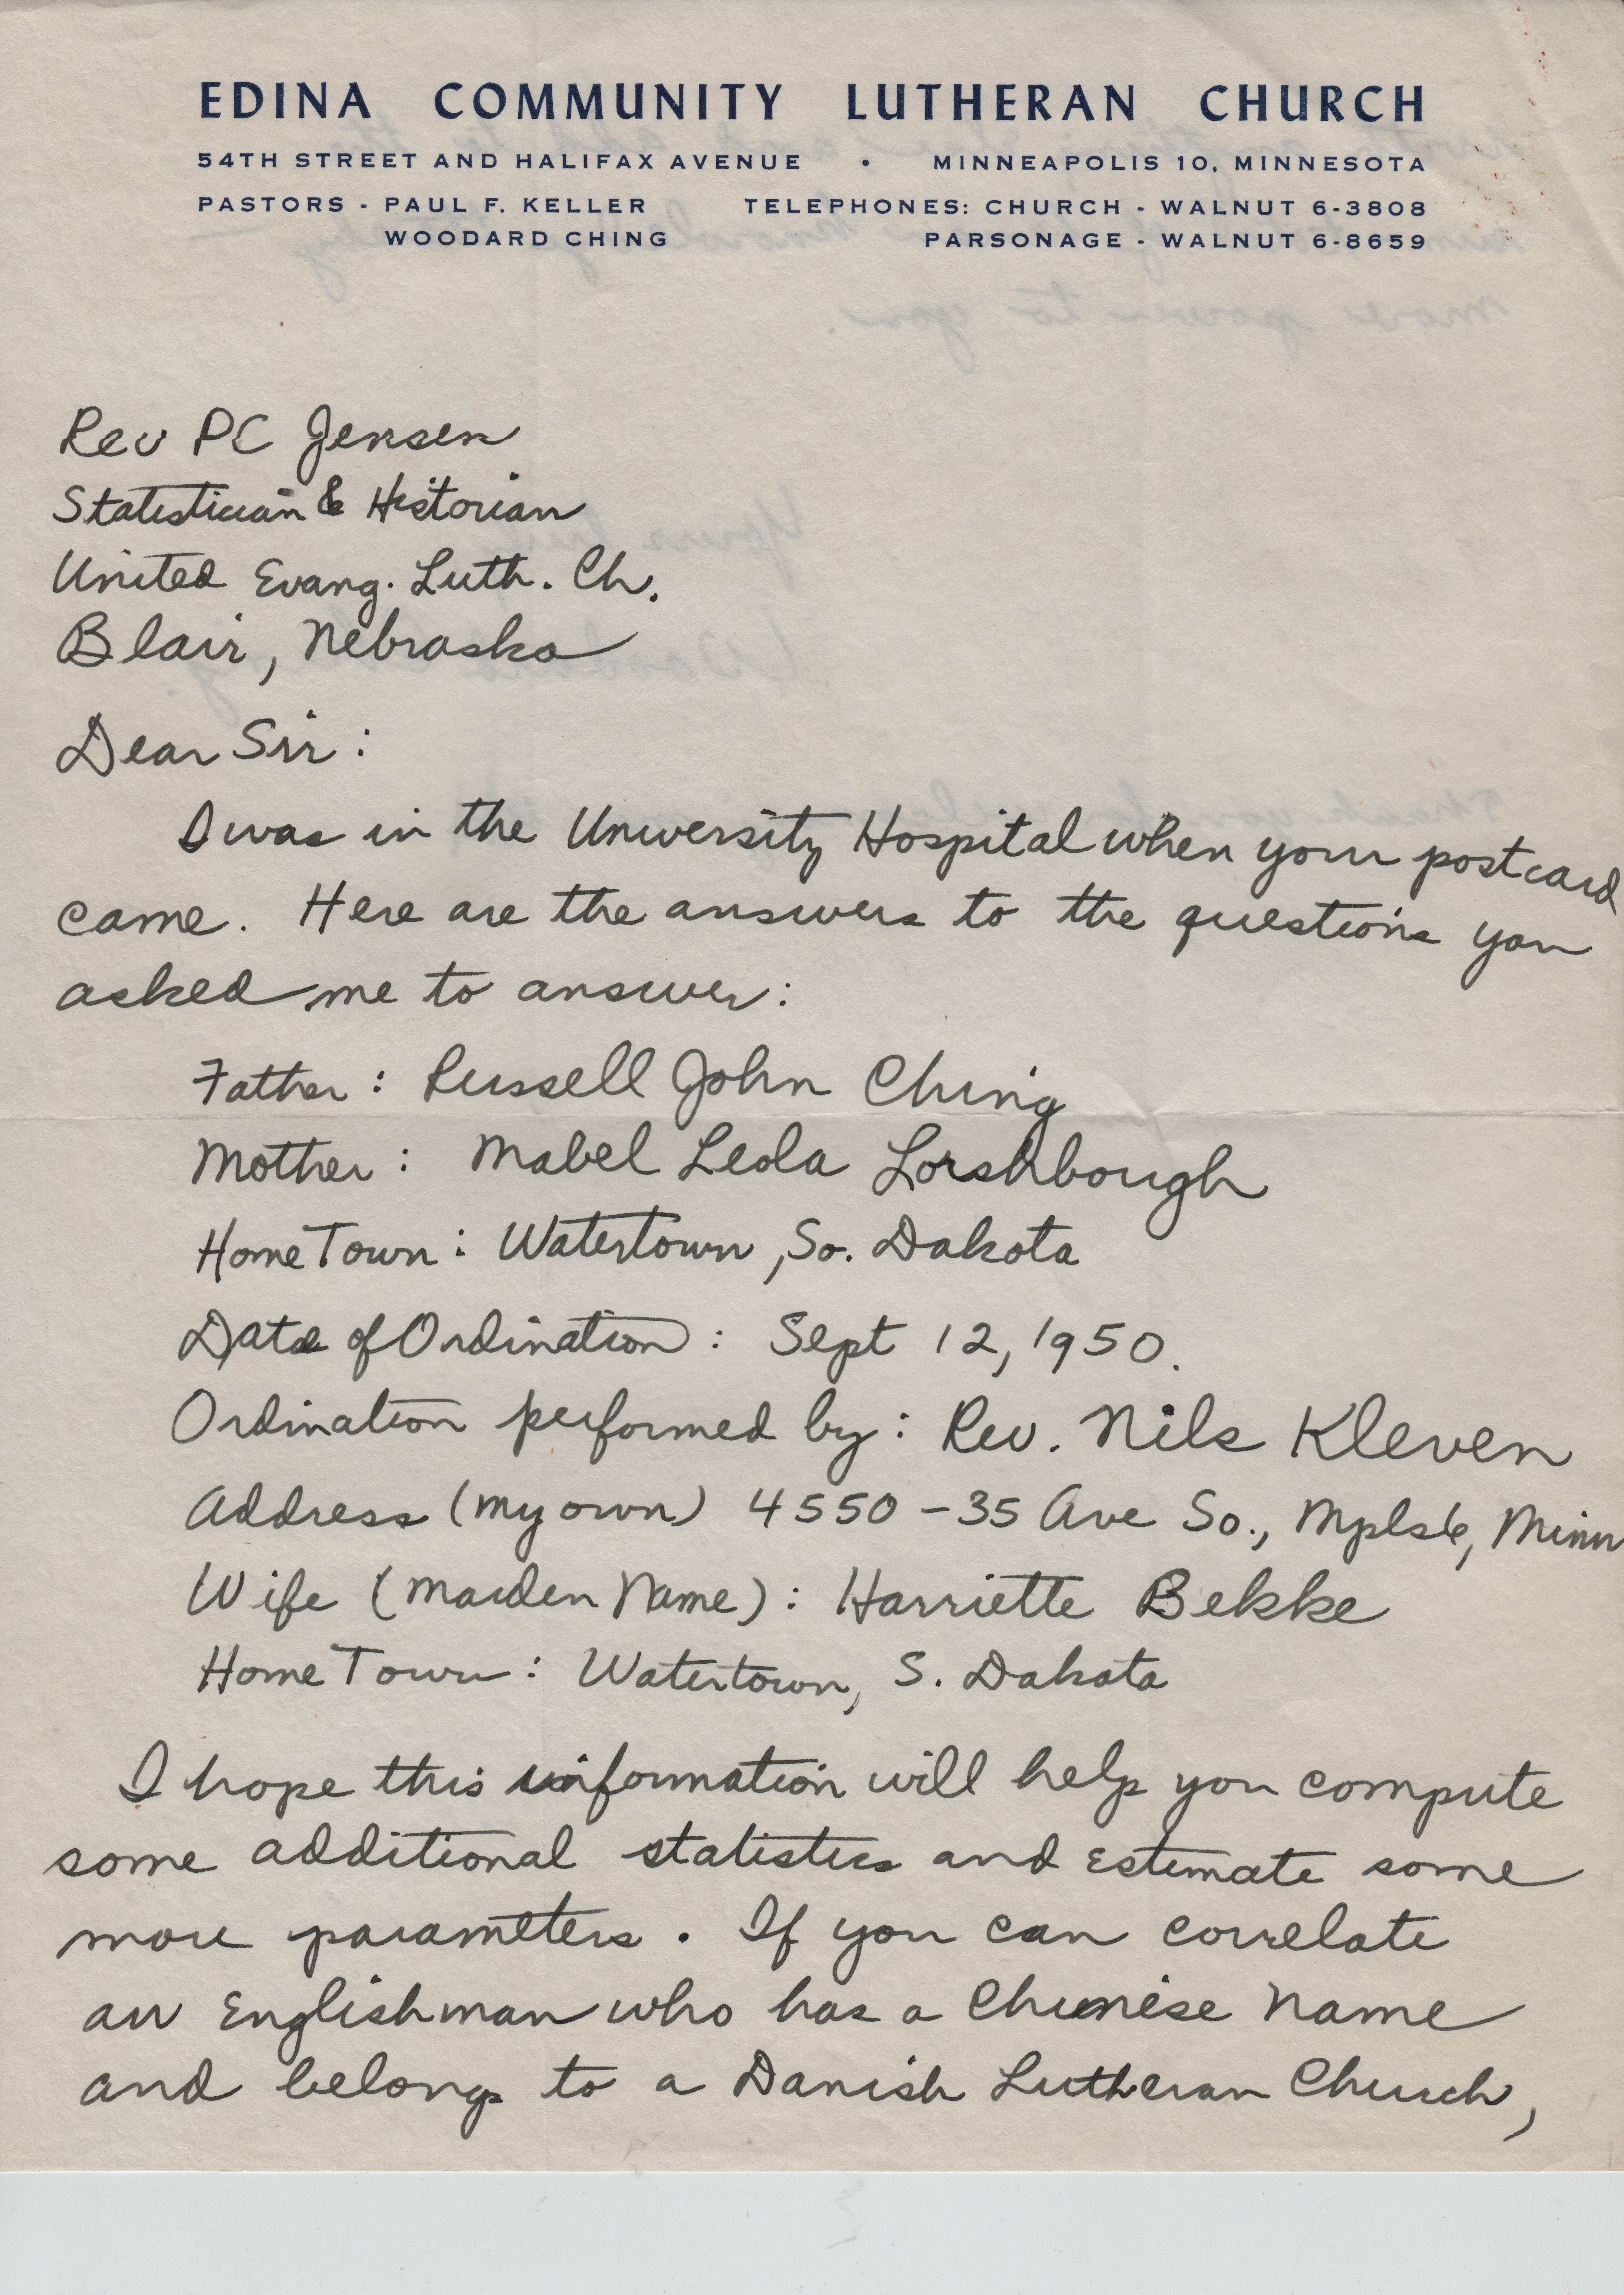 EDINA COMMUNITY LUTHERAN CHURCH
54TH STREET AND HALIFAX AVENUE • MINNEAPOLIS 10, MINNESOTA
PASTORS - PAUL F. KELLER TELEPHONES: CHURCH - WALNUT 6-3808
WOODARD CHING PARSONAGE - WALNUT 6-8659
Rev PC Jensen
Statistician & Historian
United Evang. Luth. Ch.
Blair, Nebraska
Dear Sir:
I was in the University Hospital when your postcard
came. Here are the answers to the questions you
asked me to answer:
Father: Russell John Ching
Mother: Mabel Leola Lorshbough
Home Town: Watertown, So. Dakota
Date of Ordination: Sept 12, 1950.
Ordination performed by: Rev. Nils Kleven
Address (my own) 4550-35 Ave So., Mpls 6, Minn
Wife (Maiden Name): Harriette Bekke
Home Town: Watertown, S. Dakota
I hope this information will help you compute
some additional statistics and estimate some
more parameters. If you can correlate
an Englishman who has a Chinese name
and belongs to a Danish Lutheran Church,